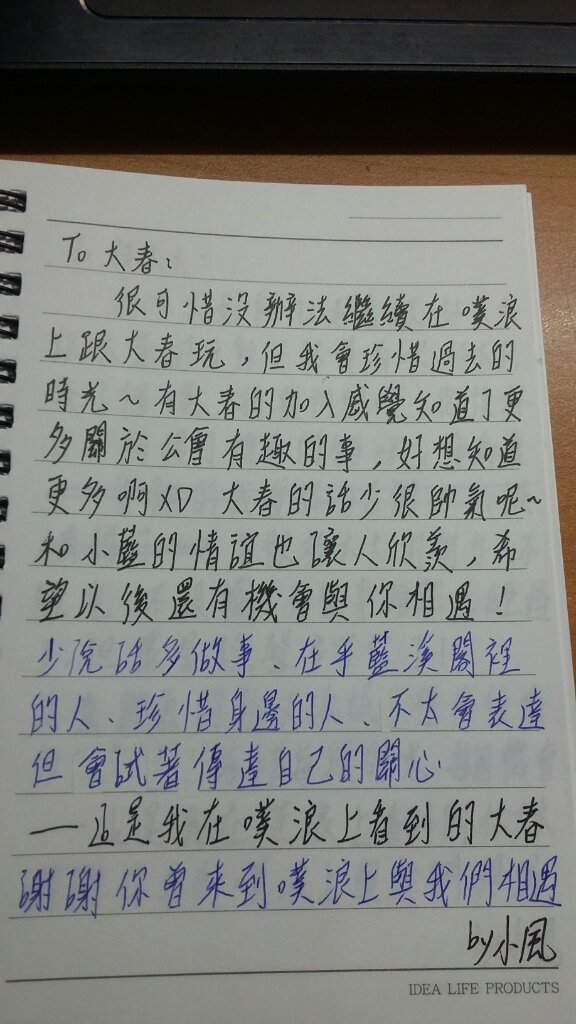 To 大春：
很可惜沒辦法繼續在噗浪
上跟大春玩，但我會珍惜過去的
時光～有大春的加入感覺知道了更
多關於公會有趣的事，好想知道
更多啊XD 大春的話少很帥氣呢～
和小藍的情誼也讓人欣羨，希
望以後還有機會與你相遇！
少說話多做事、在乎藍溪閣裡
的人、珍惜身邊的人、不太會表達
但會試著傳達自己的關心
——這是我在噗浪上看到的大春
謝謝你曾來到噗浪上與我們相遇
by小風
IDEA LIFE PRODUCTS